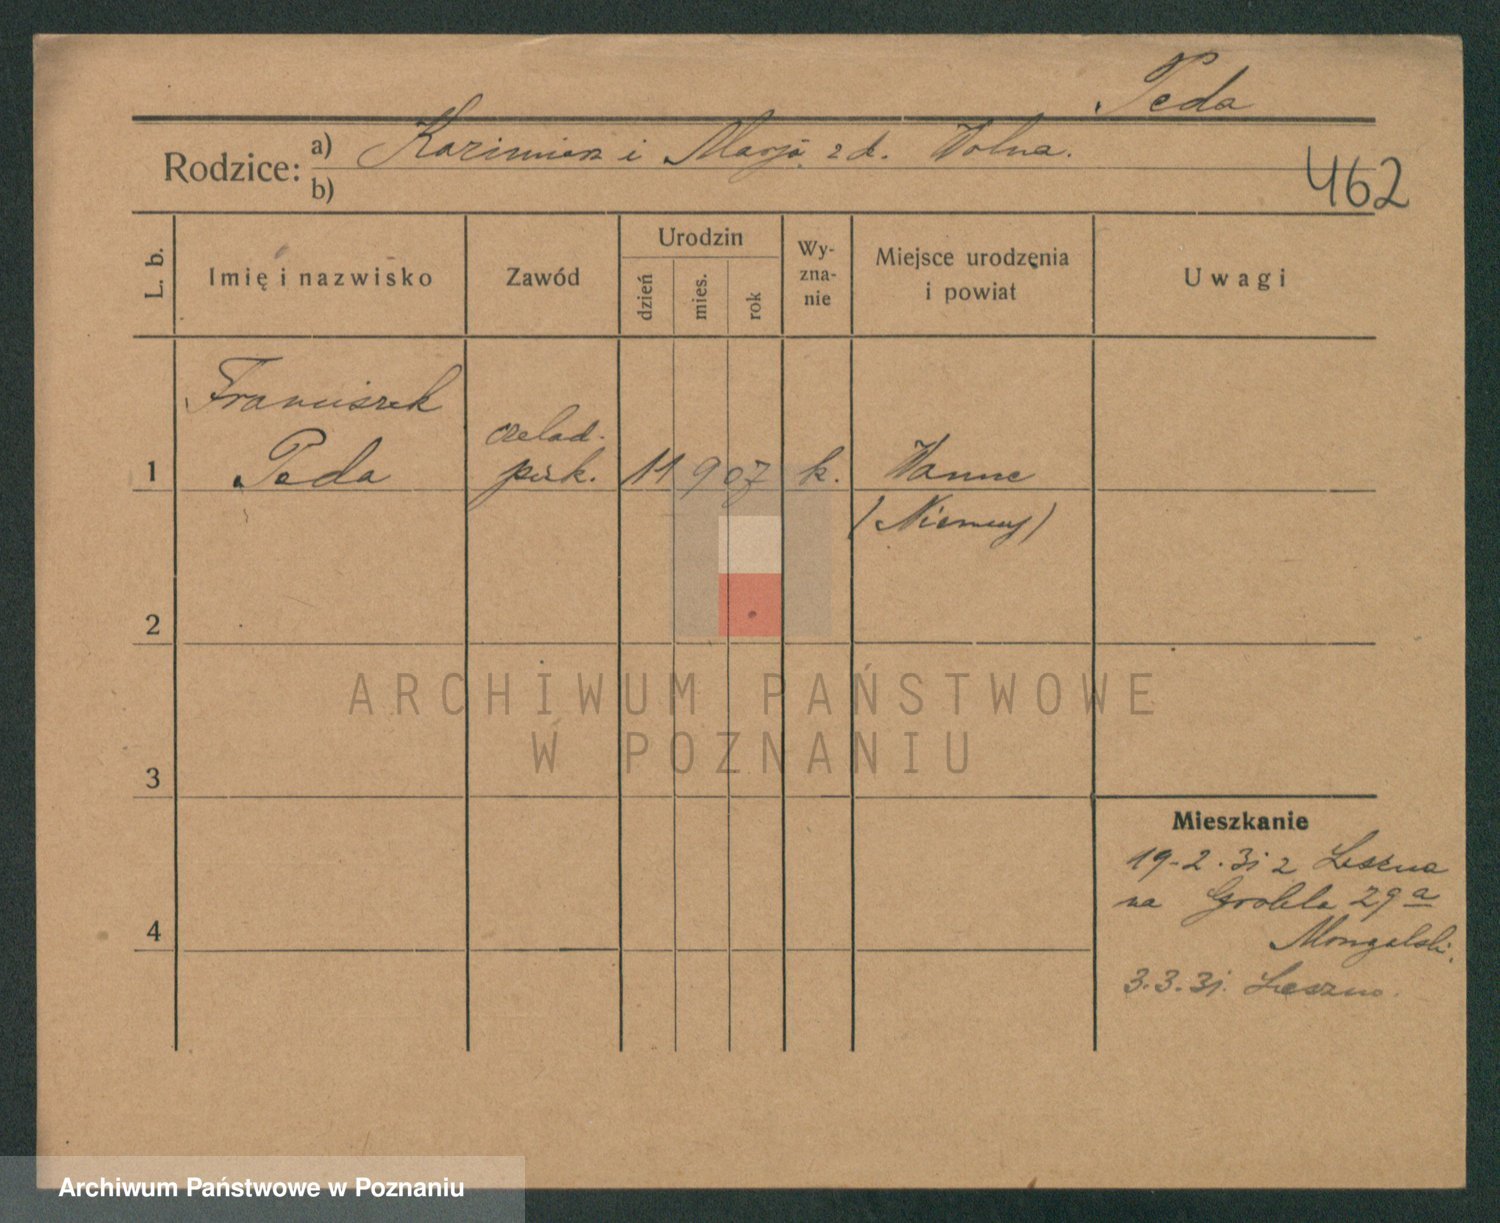 Peda
Rodzice: a) Kazimierz i Marja z d. Wolna.
b)
462
L. b.
Imię i nazwisko
Zawód
Urodzin
dzień
mies.
rok
Wy-
zna-
nie
Miejsce urodzenia
i powiat
Uwagi
Franciszek
czelad.
1 Peda piek. 11 9 07 k. Wanne
(Niemcy)
2
3
4
Mieszkanie
19-2.31 z Leszna
na Grobla 29a
Mongelski.
3.3.31. Leszno.
ARCHIWUM PAŃSTWOWE
W POZNANIU
Archiwum Państwowe w Poznaniu